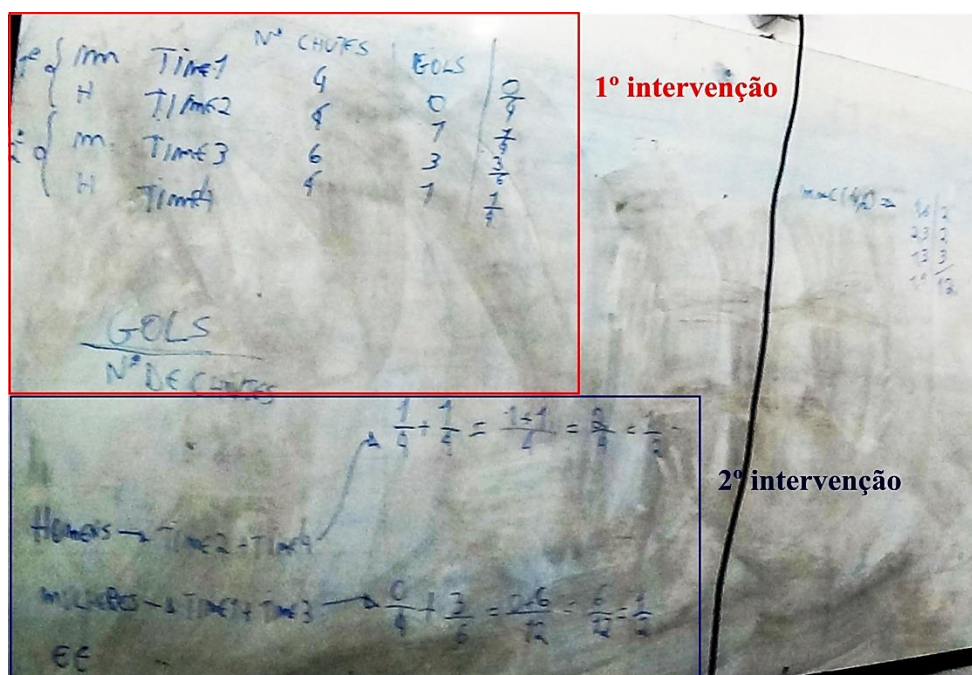 Nº CHUTES GOLS
m TIME1 4 0 0/4
H TIME2 4 1 1/4
m TIME3 6 3 3/6
H TIME4 4 1 1/4
1º intervenção
GOLS
Nº DE CHUTES
1/4 + 1/4 = 1+1/4 = 2/4 = 1/2
2º intervenção
HOMENS → TIME2 + TIME4
MULHERES → TIME1 + TIME3 → 0/4 + 3/6 = 0+6/12 = 6/12 = 1/2